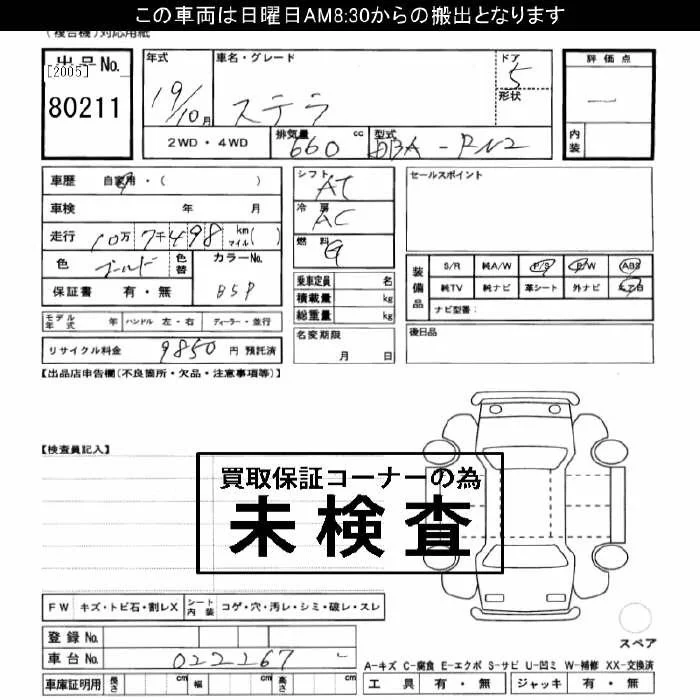 この車両は日曜日AM8:30からの搬出となります
(複合機)対応用紙
出品No. [2005] 80211
年式 19/10月
車名・グレード ステラ
ドア 5
形状
評価点 —
内装
2WD・4WD
排気量 660 cc
型式 DBA-RN2
車歴 自家用・( )
車検 年 月
走行 10万7千498 km マイル( )
色 ゴールド 色替 カラーNo. B5P
保証書 有・無
シフト AT
冷房 AC
燃料 G
乗車定員 名
積載量 kg
総重量 kg
セールスポイント
装備品 S/R 純A/W P/S P/W ABS
純TV 純ナビ 革シート 外ナビ エアB
ナビ型番:
モデル年式 年 ハンドル 左・右 ディーラー・並行
名変期限 月 日
後日品
リサイクル料金 9850 円 預託済
【出品店申告欄(不良箇所・欠品・注意事項等)】
【検査員記入】
買取保証コーナーの為
未検査
FW キズ・トビ石・割レX シート内装 コゲ・穴・汚レ・シミ・破レ・スレ
スペア
登録No.
車台No. 022267
A-キズ C-腐食 E-エクボ S-サビ U-凹ミ W-補修 XX-交換済
車庫証明用 長さ cm 幅 cm 高さ cm
工具 有・無 ジャッキ 有・無